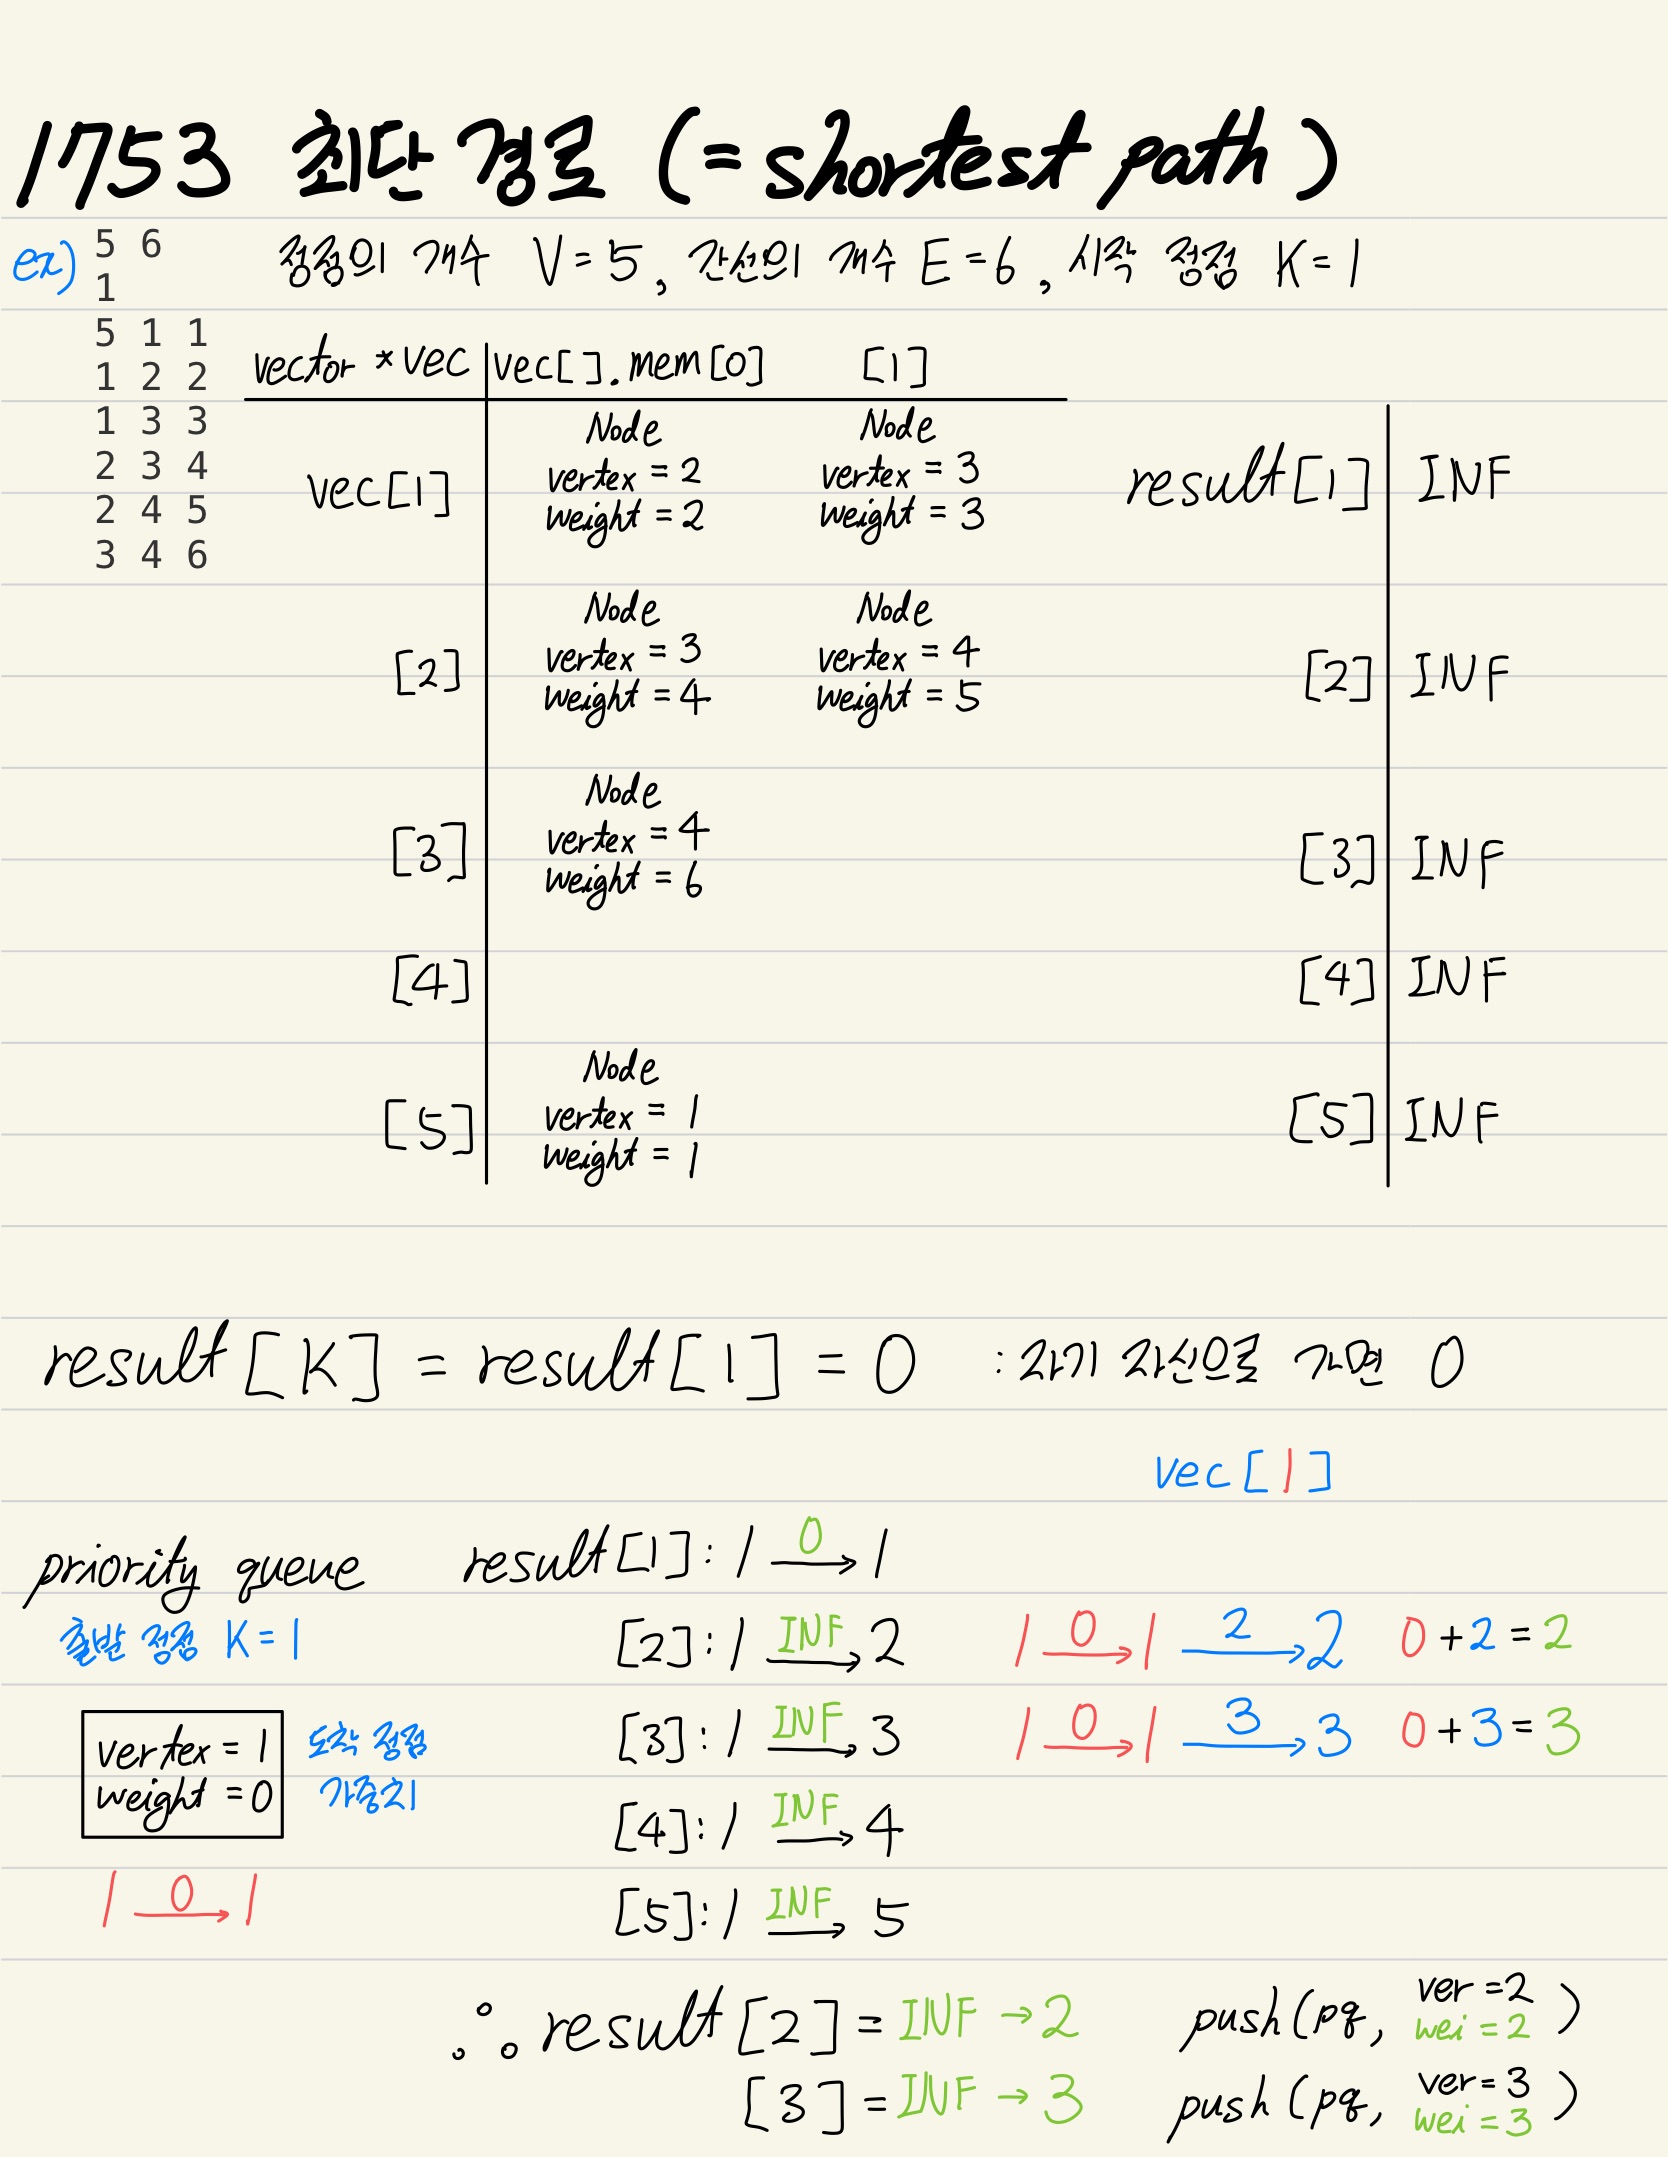 1753 최단 경로 (= shortest path)
ex) 5 6
1
5 1 1
1 2 2
1 3 3
2 3 4
2 4 5
3 4 6
정점의 개수 V = 5, 간선의 개수 E = 6, 시작 정점 K = 1
vector *vec vec[].mem[0] [1]
vec[1]
Node
vertex = 2
weight = 2
Node
vertex = 3
weight = 3
[2]
Node
vertex = 3
weight = 4
Node
vertex = 4
weight = 5
[3]
Node
vertex = 4
weight = 6
[4]
[5]
Node
vertex = 1
weight = 1
result[1] INF
[2] INF
[3] INF
[4] INF
[5] INF
result[K] = result[1] = 0 : 자기 자신으로 가면 0
vec[1]
priority queue
출발 정점 K = 1
vertex = 1 도착 정점
weight = 0 가중치
1 0→ 1
result[1] : 1 0→ 1
[2] : 1 INF→ 2 1 0→ 1 2→ 2 0 + 2 = 2
[3] : 1 INF→ 3 1 0→ 1 3→ 3 0 + 3 = 3
[4] : 1 INF→ 4
[5] : 1 INF→ 5
∴ result[2] = INF → 2 push(pq, ver = 2 wei = 2)
[3] = INF → 3 push(pq, ver = 3 wei = 3)